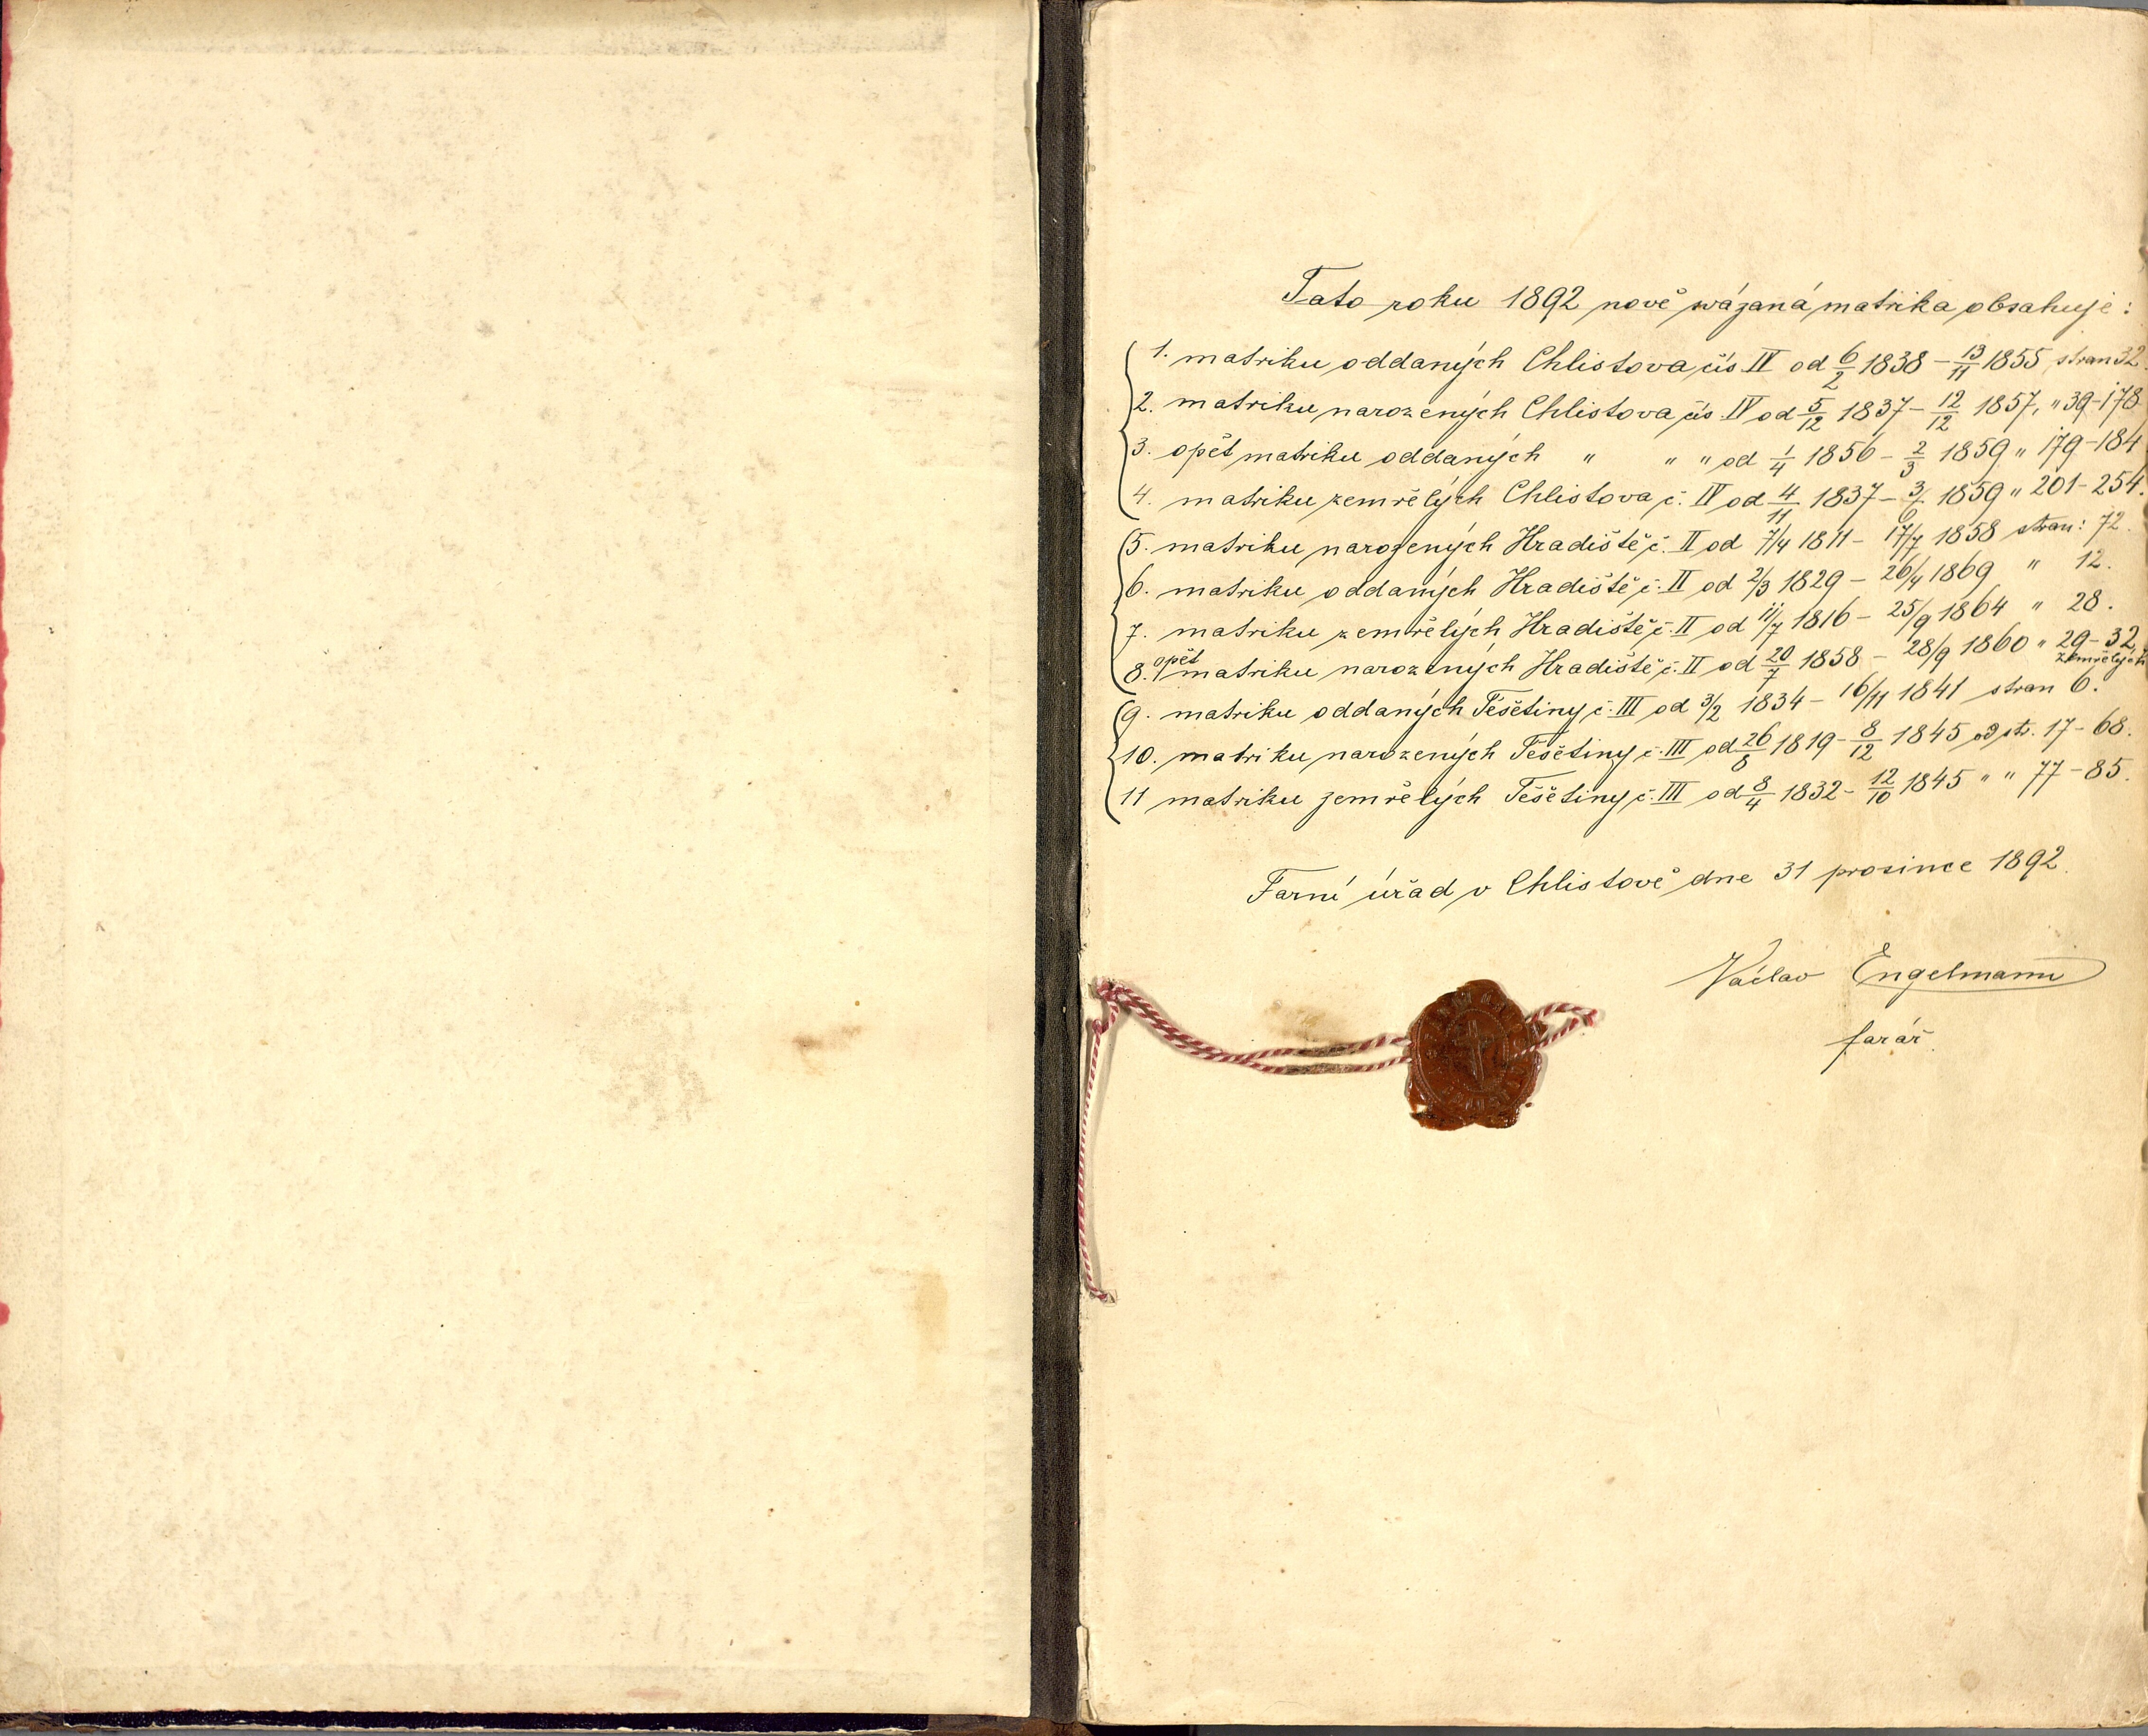 Tato roku 1892 nově svázaná matrika obsahuje:
1. matriku oddaných Chlistova čís IV od 6/2 1838 – 13/11 1855 stran 32.
2. matriku narozených Chlistova čís. IV od 5/12 1837 – 12/12 1857, " 39–178
3. opět matriku oddaných " " " od 1/4 1856 – 2/3 1859 " 179–184
4. matriku zemřelých Chlistova č. IV od 4/11 1837 – 3/6 1859 " 201–254.
5. matriku narozených Hradiště č. II od 7/4 1811 – 17/7 1858 stran: 72.
6. matriku oddaných Hradiště č. II od 2/3 1829 – 26/4 1869 " 12.
7. matriku zemřelých Hradiště č. II od 11/7 1816 – 25/9 1864 " 28.
8. opět matriku narozených Hradiště č. II od 20/7 1858 – 28/9 1860 " 29–32, zemřelých
9. matriku oddaných Těšetiny č. III od 3/2 1834 – 16/11 1841 stran 6.
10. matriku narozených Těšetiny č. III od 26/8 1819 – 8/12 1845 od str. 17–68.
11 matriku zemřelých Těšetiny č. III od 8/4 1832 – 12/10 1845 " " 77–85.
Farní úřad v Chlistově dne 31 prosince 1892.
Václav Engelmann
farář.